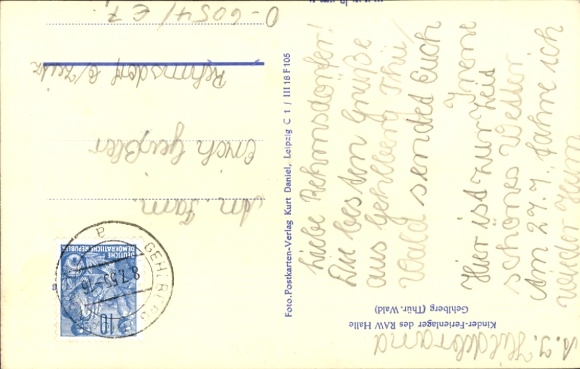 Liebe Rehmsdorfer!
Die besten Grüße
aus Gehlberg Thür
Wald sendet Euch
Irene
Hier ist zur Zeit
schönes Wetter
Am 27.7. fahre ich
wieder Heim
Kinder-Ferienlager des RAW Halle
Gehlberg (Thür. Wald)
Foto.Postkarten-Verlag Kurt Daniel, Leipzig C 1 / III 18 F 105
DEUTSCHE
DEMOKRATISCHE REPUBLIK
10
GEHLBERG
An Fam.
Erich Geißler
Rehmsdorf b/Zeitz
Hildebrand